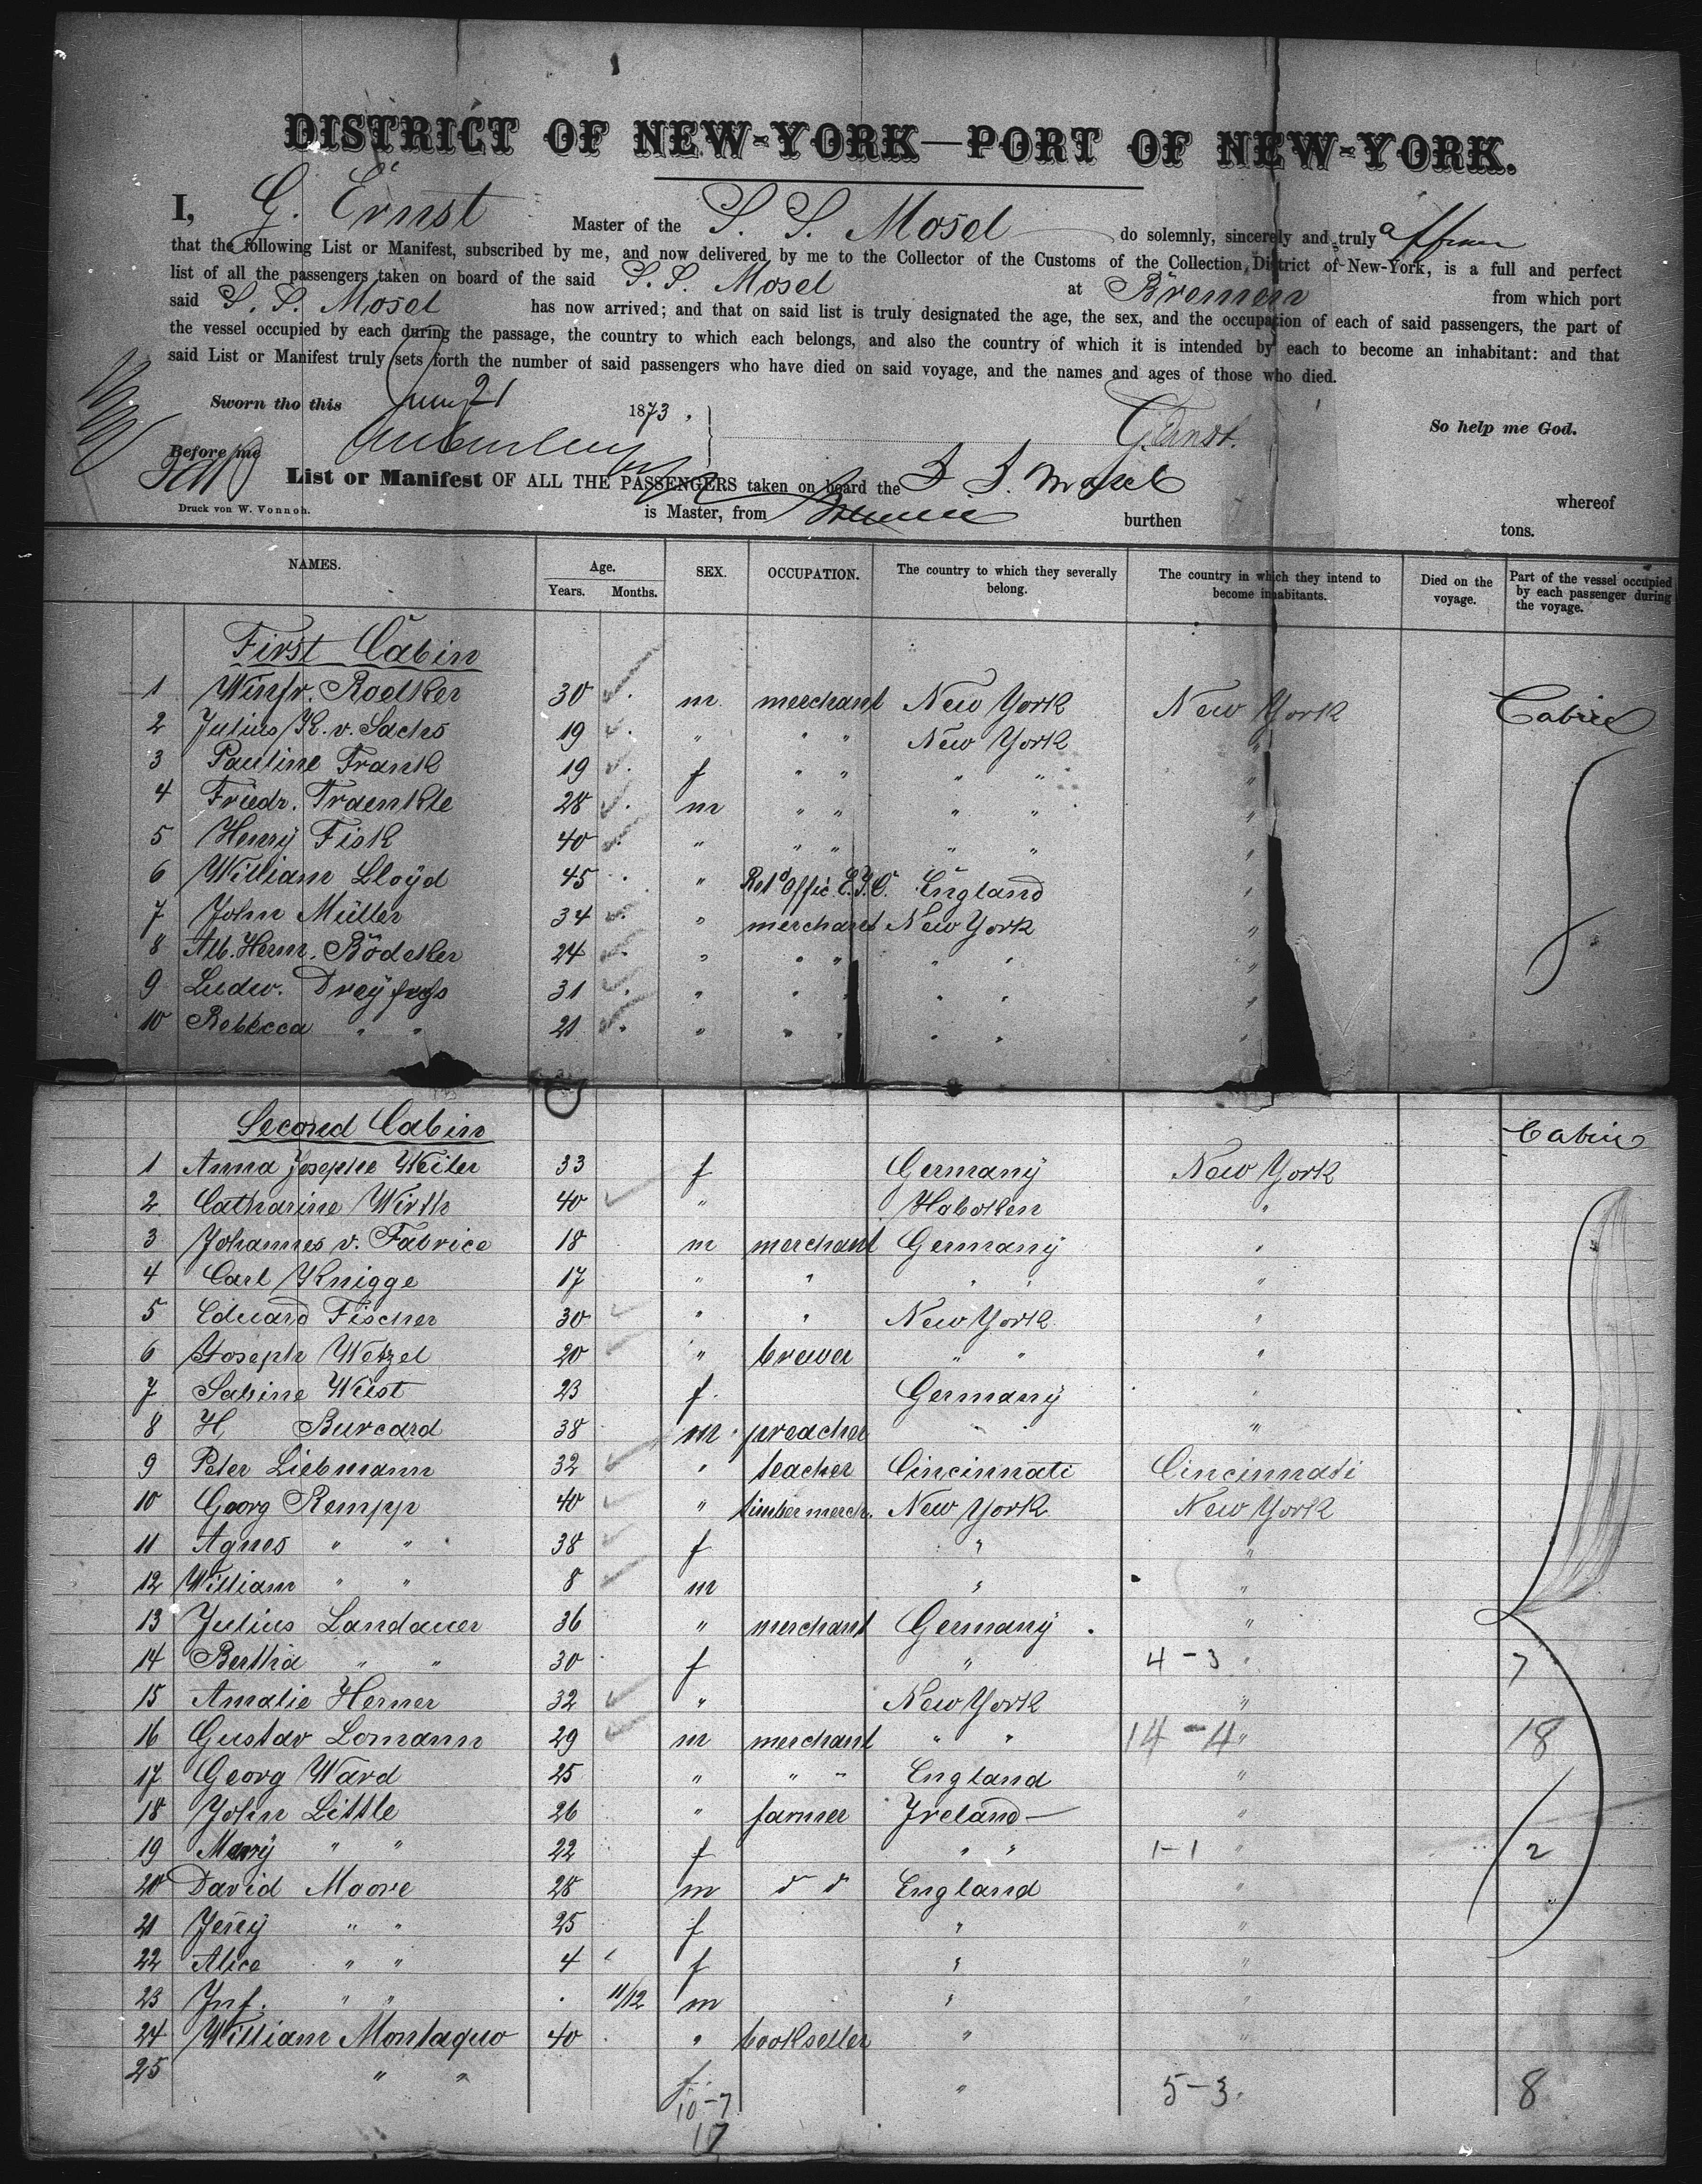 DISTRICT OF NEW-YORK—PORT OF NEW-YORK.
I, G. Ernst Master of the S. S. Mosel do solemnly, sincerely and truly affirm
that the following List or Manifest, subscribed by me, and now delivered by me to the Collector of the Customs of the Collection District of New-York, is a full and perfect
list of all the passengers taken on board of the said S. S. Mosel at Bremen from which port
said S. S. Mosel has now arrived; and that on said list is truly designated the age, the sex, and the occupation of each of said passengers, the part of
the vessel occupied by each during the passage, the country to which each belongs, and also the country of which it is intended by each to become an inhabitant: and that
said List or Manifest truly sets forth the number of said passengers who have died on said voyage, and the names and ages of those who died.
Sworn tho this 21 1873. So help me God.
Before me G. Ernst.
List or Manifest OF ALL THE PASSENGERS taken on board the S S. Mosel whereof
Druck von W. Vonnoh. is Master, from Bremen burthen tons.
NAMES. Age. Years. Months. SEX. OCCUPATION. The country to which they severally belong. The country in which they intend to become inhabitants. Died on the voyage. Part of the vessel occupied by each passenger during the voyage.
First Cabin
1 Winfr. Roelker 30 m. merchant New York New York Cabin
2 Julius K. v. Sachs 19 " " " New York "
3 Pauline Frank 19 f " " " " "
4 Friedr. Fraenkle 28 m " " " " "
5 Henry Fisk 40 " " " " " "
6 William Lloyd 45 " Retd Offic. E.I.C. England "
7 John Müller 34 " merchant New York "
8 Alb. Herm. Bödeker 24 " " " " " "
9 Ludw. Dreyfuss 31 " " " " " "
10 Rebecca " " 21 " " " " " "
Second Cabin Cabin
1 Anna Josephe Weiler 33 f Germany New York
2 Catharine Wirth 40 " Haboken "
3 Johannes v. Fabrice 18 m merchant Germany "
4 Carl Knigge 17 " " " " "
5 Eduard Fischer 30 " " New York "
6 Joseph Wetzel 20 " brewer " " "
7 Sabine Wüst 23 f. Germany "
8 H. Burcard 38 m. preacher " "
9 Peter Liebmann 32 " teacher Cincinnati Cincinnati
10 Georg Rempp 40 " timber merch. New York New York
11 Agnes " " 38 f " "
12 William " " 8 m " "
13 Julius Landauer 36 " merchant Germany "
14 Bertha " " 30 f " 4-3 " 7
15 Amalie Herner 32 " New York "
16 Gustav Lomann 29 m merchant " " 14-4 " 18
17 Georg Ward 25 " " " England "
18 John Little 26 " farmer Ireland "
19 Mary " " 22 f " " 1-1 " 2
20 David Moore 28 m " " England "
21 Jeny " " 25 f " "
22 Alice " " 4 f " "
23 Inf. " " 11/12 m " "
24 William Montaquo 40 " bookseller " "
25 " " f. " 5-3. 8
10-7
17